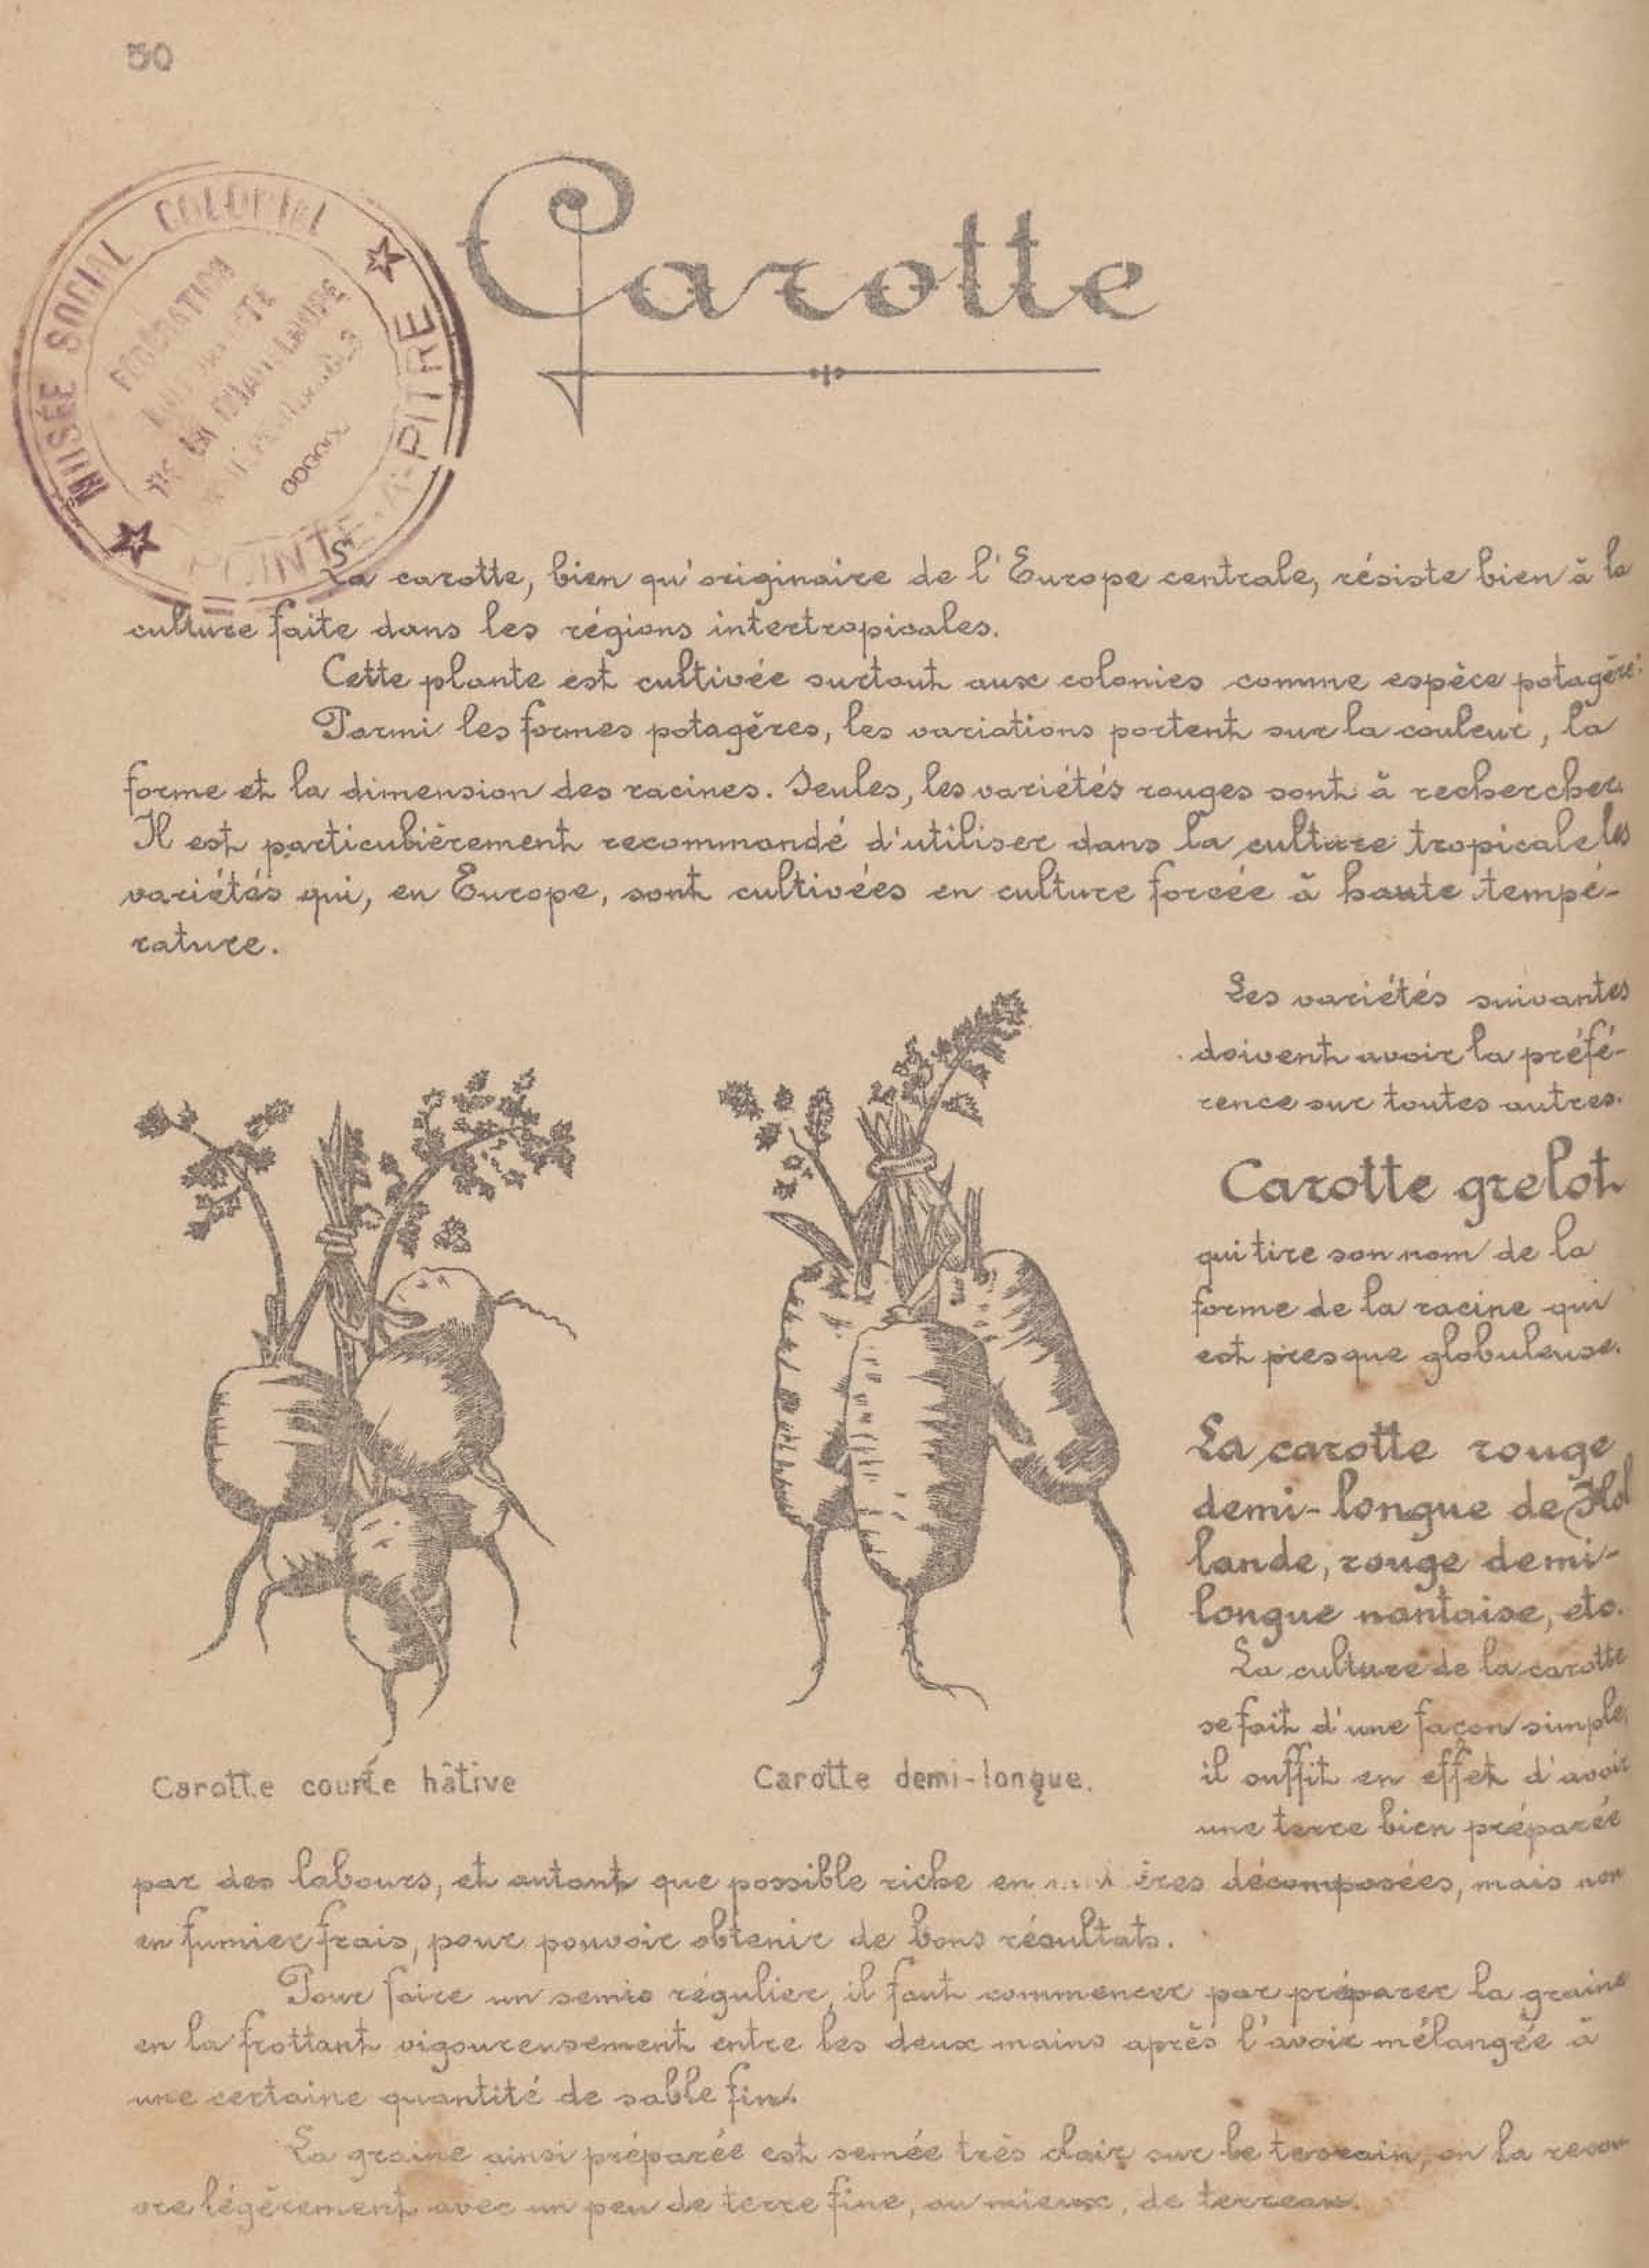 50
MUSÉE SOCIAL COLONIAL
POINTE-A-PITRE
FÉDÉRATION
DE LA GUADELOUPE
Carotte
La carotte, bien qu'originaire de l'Europe centrale, résiste bien à la
culture faite dans les régions intertropicales.
Cette plante est cultivée surtout aux colonies comme espèce potagère.
Parmi les formes potagères, les variations portent sur la couleur, la
forme et la dimension des racines. Seules, les variétés rouges sont à rechercher.
Il est particulièrement recommandé d'utiliser dans la culture tropicale les
variétés qui, en Europe, sont cultivées en culture forcée à haute tempé-
rature.
Les variétés suivantes
doivent avoir la préfé-
rence sur toutes autres.
Carotte grelot
qui tire son nom de la
forme de la racine qui
est presque globuleuse.
La carotte rouge
demi-longue de Hol
lande, rouge demi-
longue nantaise, etc.
La culture de la carotte
se fait d'une façon simple,
il suffit en effet d'avoir
une terre bien préparée
Carotte courte hâtive
Carotte demi-longue.
par des labours, et autant que possible riche en décomposées, mais non
en fumier frais, pour pouvoir obtenir de bons résultats.
Pour faire un semis régulier, il faut commencer par préparer la graine
en la frottant vigoureusement entre les deux mains après l'avoir mélangée à
une certaine quantité de sable fin.
La graine ainsi préparée est semée très clair sur le terrain, on la recou
vre légèrement avec un peu de terre fine, ou mieux, de terreau.